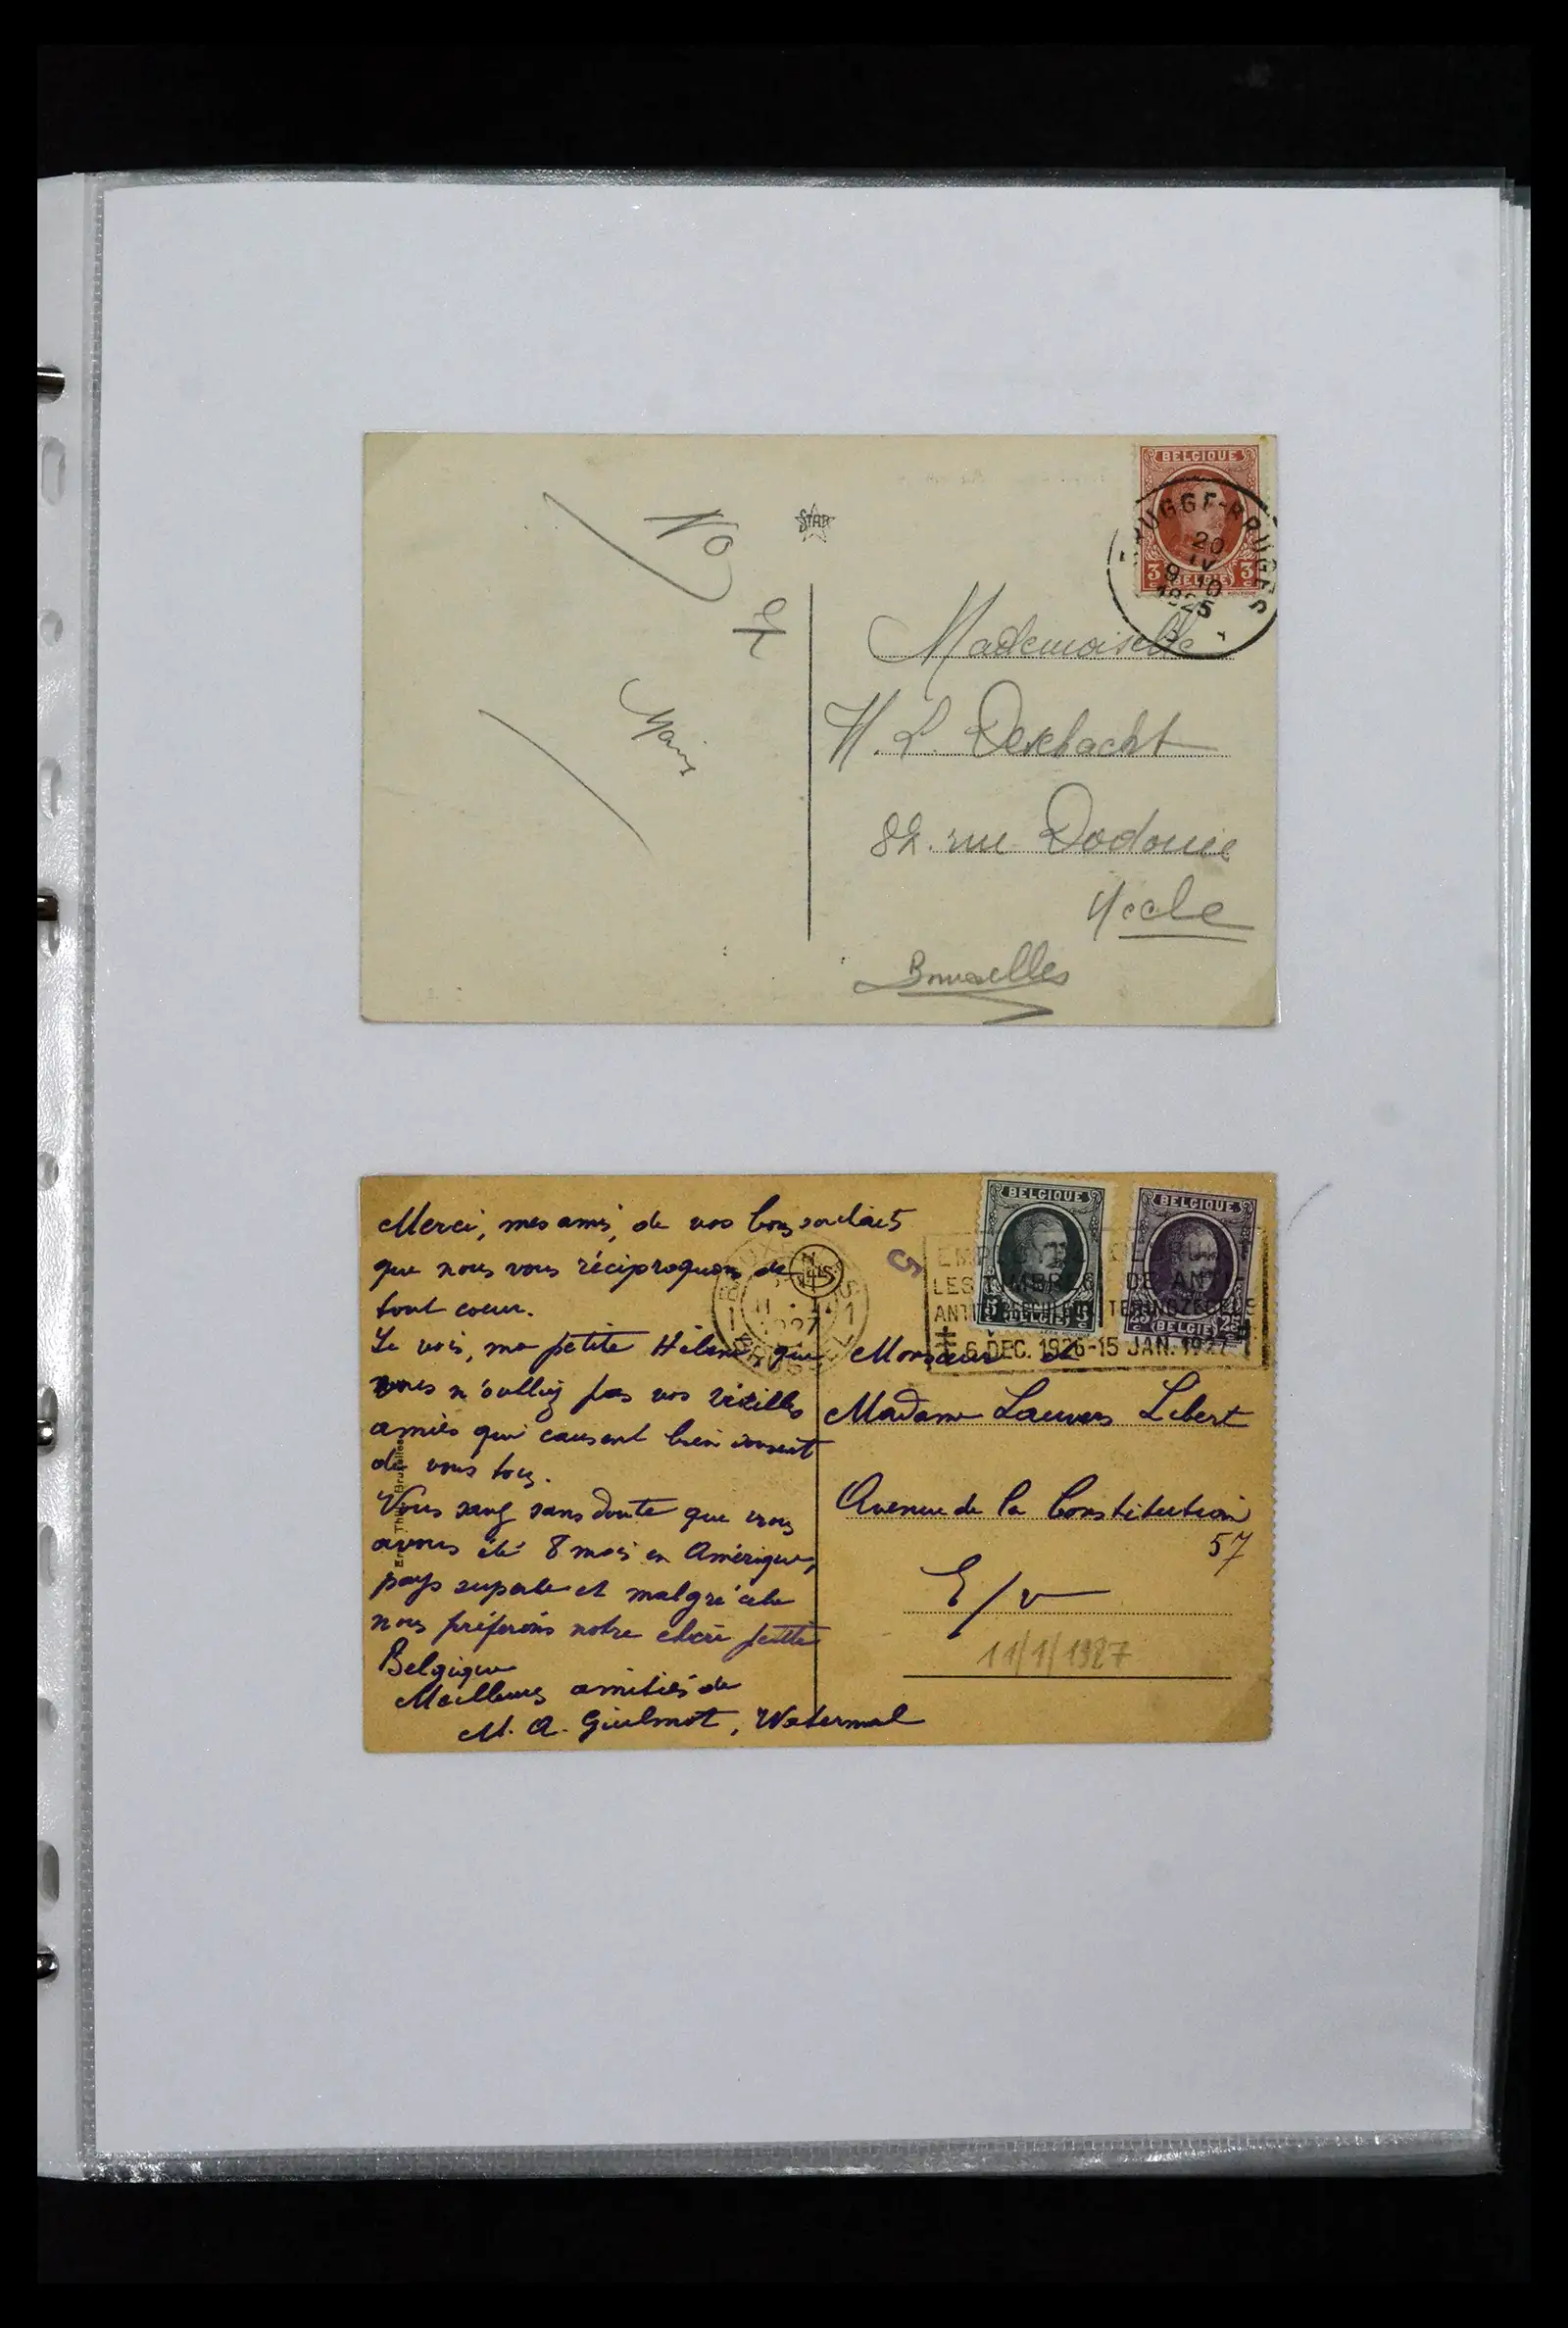 STAR
BELGIQUE
3 BELGIE 3
BRUGGE-BRUGES
20
IV
9-10
1925
No
et
Mademoiselle
H. L. Deschacht
82. rue Dodonée
Uccle
Bruxelles
BELGIQUE
5 BELGIE 5
BELGIQUE
25 BELGIE 25
LES TIMBRES DE AN
ANTITUBERCULEUX TERINGZEGELS
6 DEC. 1926-15 JAN. 1927
1 1
1927
Merci, mes amis, de vos bons souhaits
que nous vous réciproquons de
tout coeur.
Je vois, ma petite Hélène, que
vous n'oubliez pas vos vieilles
amies qui causent bien souvent
de vous tous.
Vous savez sans doute que nous
avons été 8 mois en Amérique,
pays superbe et malgré cela
nous préférons notre chère petite
Belgique
Meilleures amitiés de
M. A. Guilmot, Watermael
Monsieur et
Madame Lauwers Libert
Avenue de la Constitution
57
E/v
11/1/1927
Ern. Thill, Bruxelles